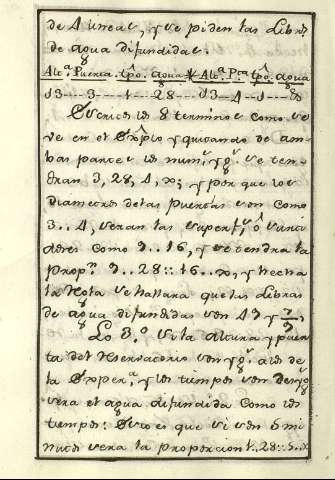 de 4 lineas, y se piden las Libras
de agua difundidas.
Alt.ª Puerta tpô. agua Alt.ª Pta tpô. agua
13---3---1---28---13-4-1---
Escritos los 8 terminos como se
ve en el y quitando de am-
bas partes los num.s yg.s se ten-
dran 3, 28, 4, x; y por que los
diametros de las Puertas son como
3..4, seran las superf.s, ô vanci
dores como 9..16, y se tendra la
prop.n 9..28::16..x, y hecha
la Nota se hallara que las Libras
de agua difundidas son 49 y 7/9.
Lo 3.º si la altura y puer
ta del Reservatorio son yg.s a los de
la Exper.a, y los tiempos son desyg.s
sera el agua difundida como los
tiempos: Esto es que si son 5 mi
nutos sera la proporcion 1..28::5..x